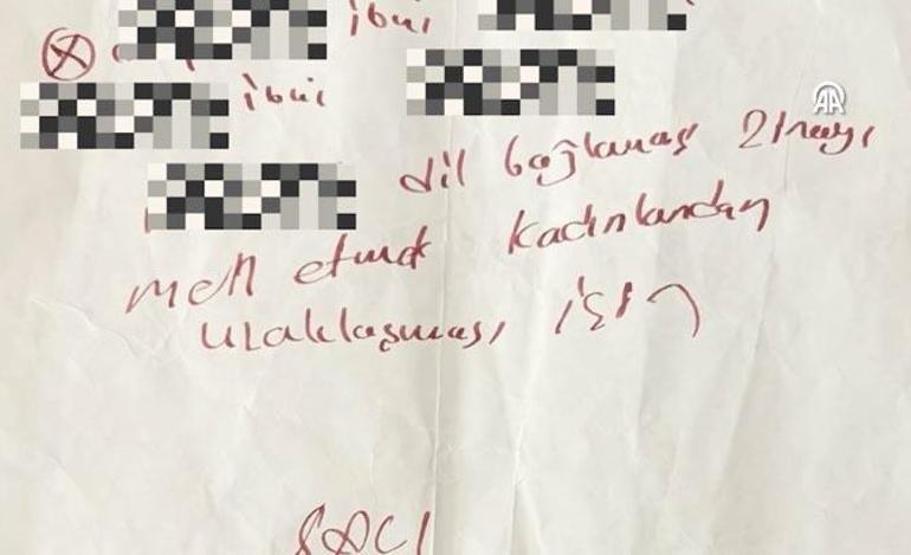 ibni
ibni
dil bağlamas zinayı
men etmek kadınlardan
uzaklaşması için
AA